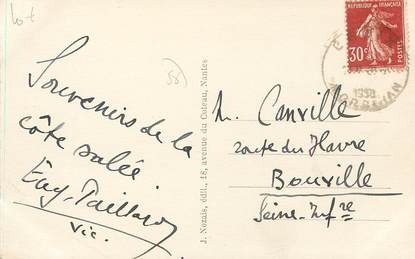 Souvenirs de la
côte salée
Eug. Taillard
Vic.
J. Nozais, édit., 18, avenue du Coteau, Nantes
M. Canville
route du Havre
Bouville
Seine-Infre
REPUBLIQUE FRANÇAISE
30c
POSTES
1938